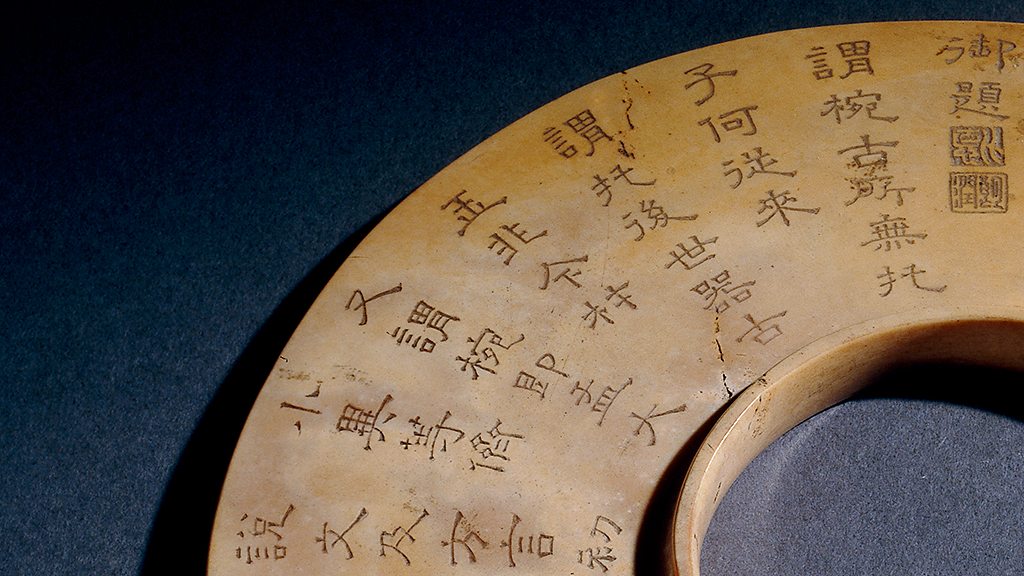 御題
比德
朗潤
謂椀古所無托
子何從來
謂托後世器古
玉非今材
又謂椀即盂大
小異等儕
說文及方言初